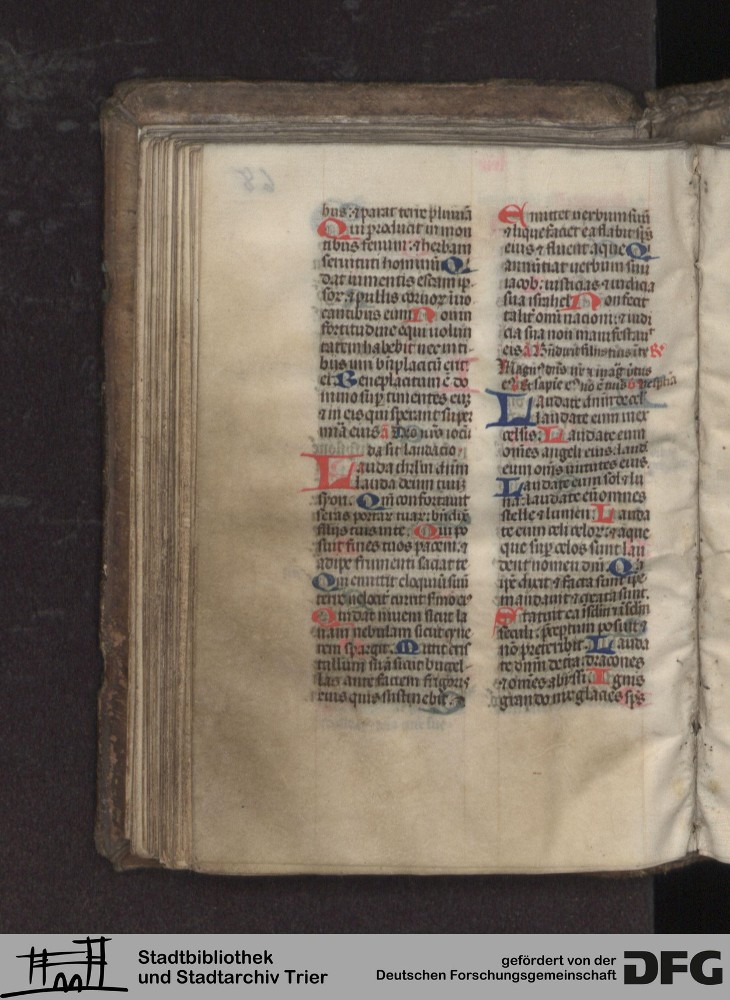 bus: ⁊ parat terre pluuiā
Qui producit in mon
tibus fenum: ⁊ herbam
seruituti hominū Q'
dat iumentis escam ip
sor: ⁊ pullis coruor īuo
cantibus eum Non in
fortitudine equi volun
tatem habebit nec in ti
bus viri bn̄placitū erit
ei Beneplacitum ē do
mino sup timentes eū
⁊ in eis qui sperant super
mīa eius ā Deo nrō iocū
da sit laudatio
Lauda ihrlm dūm
lauda deum tuū
syon. Qm̄ confortauit
seras portar tuar: bn̄dix̄
filijs tuis in te. Qui po
suit fines tuos pacem: ⁊
adipe frumenti saciat te
Qui emittit eloquiū suū
terre uelociť currit ẜmo eī
Qui dat niuem sicut la
nam nebulam sicut cine
rem spargit. Mittit cris
tallum suā sicut buccel
las ante faciem frigoris
eius quis sustinebit.
Emittet verbum suū
⁊ liquefaciet ea flabit sp̄s
eius ⁊ fluent aque Q'
annūtiat uerbum suū
iacob: iusticias ⁊ iudicia
sua israhel Non fecit
talit̄ om̄i nacioni: ⁊ iudi
cia sua non manifestau̇
eis ā Bn̄dixit filijs tuis ī te
Magn' dn̄s nr̄ ⁊ mag' v̇tus
ei' ⁊ sapīe ei' nō ē nūs
Laudate dn̄m de cel
laudate eum in ex
celsis: Laudate eum
om̄es angeli eius: laud̄
eum om̄s uirtutes eius.
Laudate eum sol ⁊ lu
na: laudate eū omnes
stelle ⁊ lumen: Lauda
te eum celi celor: ⁊ aque
que sup celos sunt lau
dent nomen dn̄i Q'
ip̄e dixit ⁊ facta sunt ip̄e
mandauit ⁊ creata sunt.
Statuit ea ī eťnū ⁊ ī sclm̄
sēculi: p̄ceptum posuit ⁊
nō preteribit. Lauda
te dn̄m de tra: dracones
⁊ om̄es abyssi. Ignis
grando nix glacies sp̄s
68
Stadtbibliothek
und Stadtarchiv Trier
gefördert von der
Deutschen Forschungsgemeinschaft
DFG